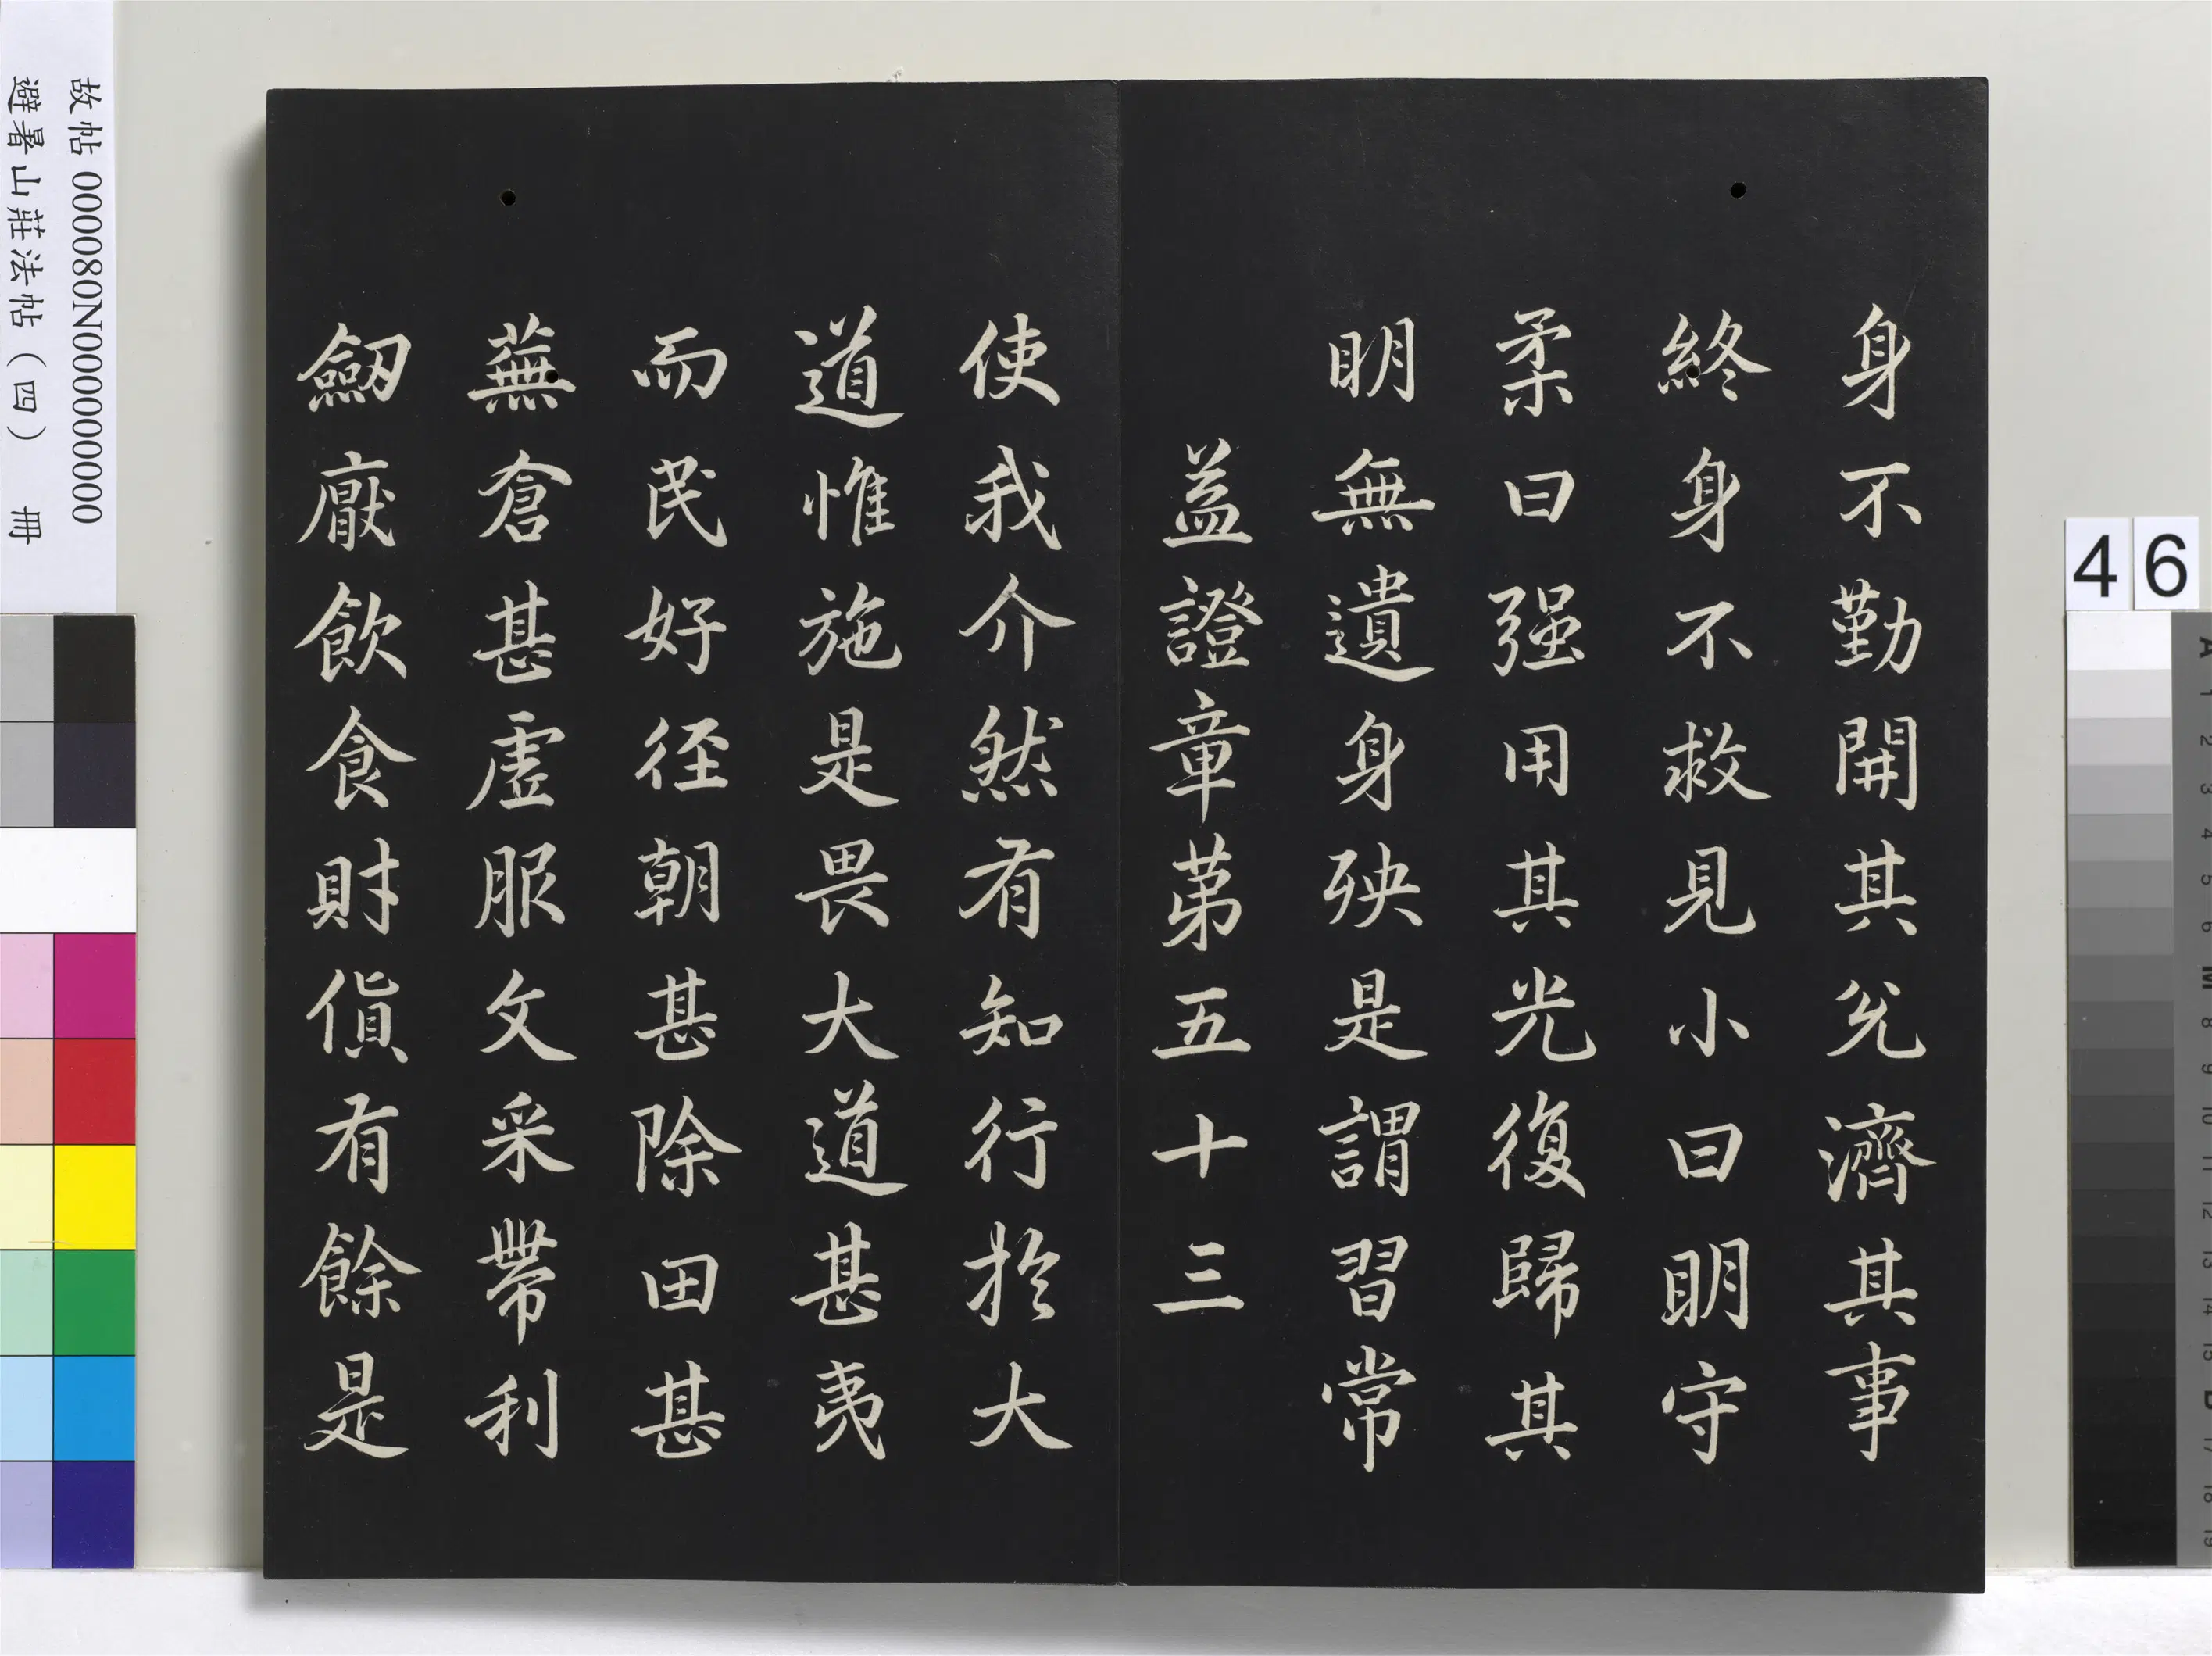 身不勤開其兊濟其事
終身不救見小曰明守
柔曰强用其光復歸其
明無遺身殃是謂習常
益證章第五十三
使我介然有知行於大
道惟施是畏大道甚夷
而民好徑朝甚除田甚
蕪倉甚虛服文采帶利
劒厭飲食財貨有餘是
故帖000080N000000000
避暑山莊法帖（四） 冊
46